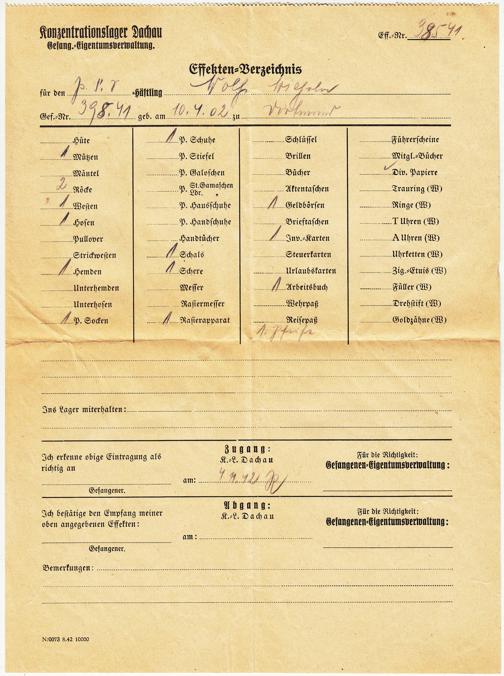 Konzentrationslager Dachau
Gefang.-Eigentumsverwaltung.
Eff.-Nr. 38541.
Effekten-Verzeichnis
für den -Häftling Wolf Wilhelm
Gef.-Nr. 398.41 geb. am 10.4.02 zu Dortmund
Hüte
1 Mützen
Mäntel
2 Röcke
1 Westen
1 Hosen
Pullover
Strickwesten
1 Hemden
Unterhemden
Unterhosen
1 P. Socken
1 P. Schuhe
P. Stiefel
P. Galoschen
P. St.Gamaschen Ldr.
P. Hausschuhe
P. Handschuhe
Handtücher
1 Schals
1 Schere
Messer
Rasiermesser
1 Rasierapparat
Schlüssel
Brillen
Bücher
Aktentaschen
1 Geldbörsen
Brieftaschen
1 Inv.-Karten
Steuerkarten
Urlaubskarten
1 Arbeitsbuch
Wehrpaß
Reisepaß
1 Pfeife
Führerscheine
Mitgl.-Bücher
Div. Papiere
Trauring (W)
Ringe (W)
T Uhren (W)
A Uhren (W)
Uhrketten (W)
Zig.-Etuis (W)
Füller (W)
Drehstift (W)
Goldzähne (W)
Ins Lager miterhalten:
Ich erkenne obige Eintragung als
richtig an
Gefangener.
Zugang:
K.-L. Dachau
am:
Für die Richtigkeit:
Gefangenen-Eigentumsverwaltung:
Ich bestätige den Empfang meiner
oben angegebenen Effekten:
Gefangener.
Abgang:
K.-L. Dachau
am:
Für die Richtigkeit:
Gefangenen-Eigentumsverwaltung:
Bemerkungen:
N:0073 8.42 10000